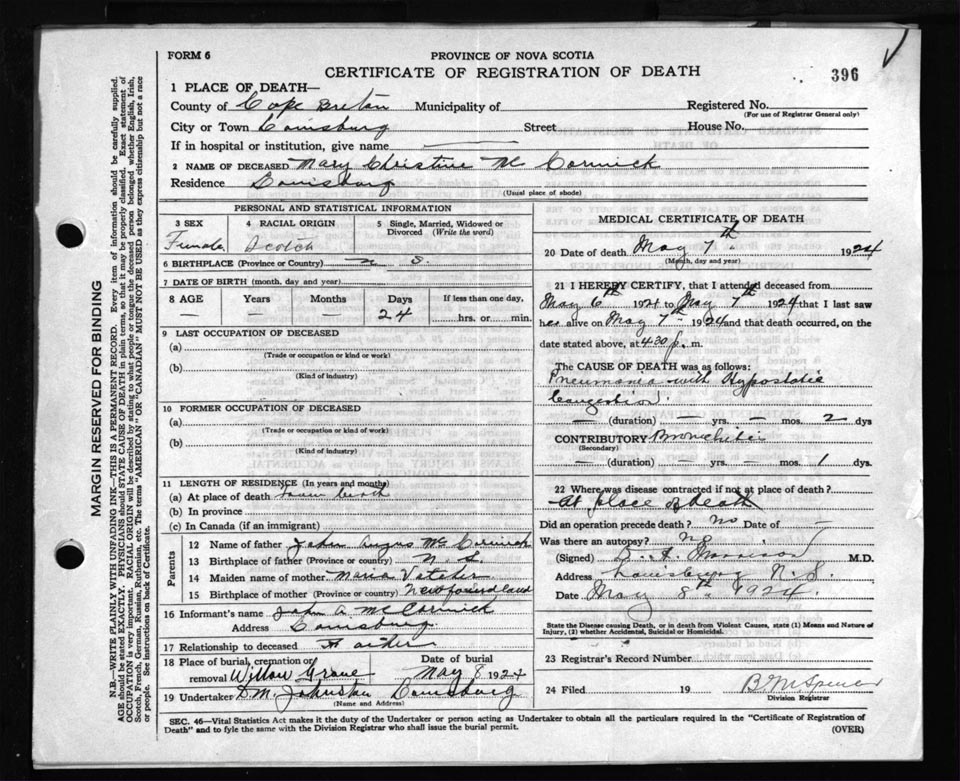 FORM 6
PROVINCE OF NOVA SCOTIA
CERTIFICATE OF REGISTRATION OF DEATH
396
1 PLACE OF DEATH—
County of Cape Breton Municipality of
Registered No.
(For use of Registrar General only)
City or Town Louisburg Street House No.
If in hospital or institution, give name —
2 NAME OF DECEASED Mary Christine Mc Cormick
Residence Louisburg
(Usual place of abode)
PERSONAL AND STATISTICAL INFORMATION
3 SEX Female
4 RACIAL ORIGIN Scotch
5 Single, Married, Widowed or Divorced (Write the word)
6 BIRTHPLACE (Province or Country) N S.
7 DATE OF BIRTH (month, day and year)
8 AGE Years Months Days If less than one day,
— — — 24 hrs. or min.
9 LAST OCCUPATION OF DECEASED
(a)
(Trade or occupation or kind or work)
(b)
(Kind of industry)
10 FORMER OCCUPATION OF DECEASED
(a)
(Trade or occupation or kind or work)
(b)
(Kind of industry)
11 LENGTH OF RESIDENCE (In years and months)
(a) At place of death from birth
(b) In province
(c) In Canada (if an immigrant)
Parents
12 Name of father John Angus Mc Cormick
13 Birthplace of father (Province or country) N. S.
14 Maiden name of mother Maria
15 Birthplace of mother (Province or country) Newfoundland
16 Informant's name John A McCormick
Address Louisburg
17 Relationship to deceased Father
18 Place of burial, cremation or removal Willow Grove
Date of burial May 8 1924
19 Undertaker D.M. Johnston Louisburg
(Name and Address)
MEDICAL CERTIFICATE OF DEATH
20 Date of death May 7th 1924
(Month, day and year)
21 I HEREBY CERTIFY, that I attended deceased from
May 6th 1924 to May 7th 1924 that I last saw
her alive on May 7th 1924 and that death occurred, on
the date stated above, at 4.30 p. m.
The CAUSE OF DEATH was as follows:
Pneumonia with Hypostatic
Congestion.
— (duration) — yrs. — mos. 2 dys
CONTRIBUTORY Bronchitis
(Secondary)
— (duration) — yrs — mos. 1 dys.
22 Where was disease contracted if not at place of death?
At place of death
Did an operation precede death? no Date of —
Was there an autopsy? no
(Signed) Morrison M.D.
Address Louisburg N.S.
Date May 8th 1924.
State the Disease causing Death, or in death from Violent Causes, state (1) Means and Nature of
Injury, (2) whether Accidental, Suicidal or Homicidal.
23 Registrar's Record Number
24 Filed 19 Spencer
Division Registrar
SEC. 46—Vital Statistics Act makes it the duty of the Undertaker or person acting as Undertaker to obtain all the particulars required in the "Certificate of Registration of
Death" and to fyle the same with the Division Registrar who shall issue the burial permit.
(OVER)
MARGIN RESERVED FOR BINDING
N.B.—WRITE PLAINLY WITH UNFADING INK—THIS IS A PERMANENT RECORD. Every item of information should be carefully supplied.
AGE should be stated EXACTLY. PHYSICIANS should STATE CAUSE OF DEATH in plain terms, so that it may be properly classified. Exact statement of
OCCUPATION is very important. RACIAL ORIGIN will be described by stating to what people or tongue the deceased person belonged whether English, Irish,
Scotch, French, German, Russian, Ruthenian, etc. The terms "AMERICAN" OR "CANADIAN" MUST NOT BE USED as they express citizenship but not a race
or people. See instructions on back of Certificate.